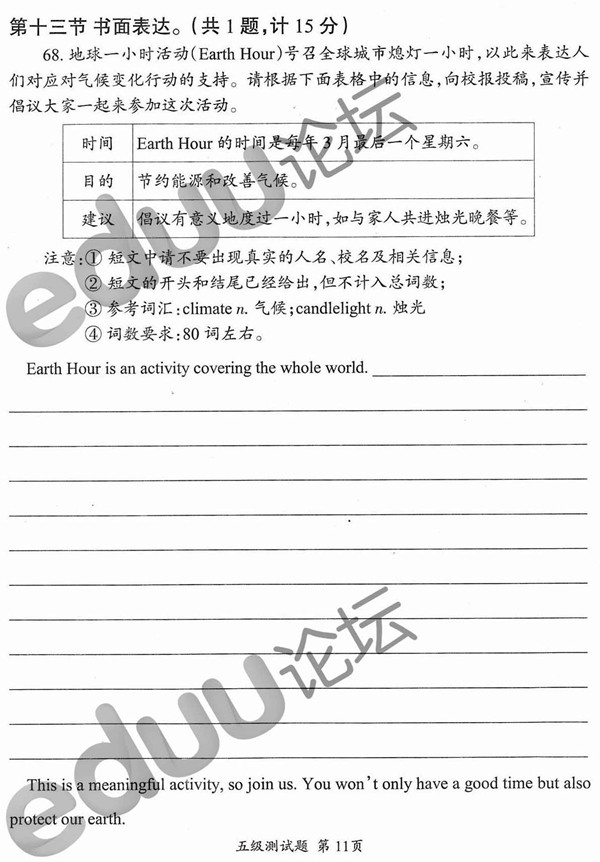 第十三节 书面表达。(共1题,计15分)
68. 地球一小时活动(Earth Hour)号召全球城市熄灯一小时,以此来表达人
们对应对气候变化行动的支持。请根据下面表格中的信息,向校报投稿,宣传并
倡议大家一起来参加这次活动。
时间 Earth Hour 的时间是每年3月最后一个星期六。
目的 节约能源和改善气候。
建议 倡议有意义地度过一小时,如与家人共进烛光晚餐等。
注意:① 短文中请不要出现真实的人名、校名及相关信息;
② 短文的开头和结尾已经给出,但不计入总词数;
③ 参考词汇:climate n. 气候;candlelight n. 烛光
④ 词数要求:80词左右。
Earth Hour is an activity covering the whole world.
This is a meaningful activity, so join us. You won't only have a good time but also
protect our earth.
五级测试题 第11页
eduu论坛
eduu论坛